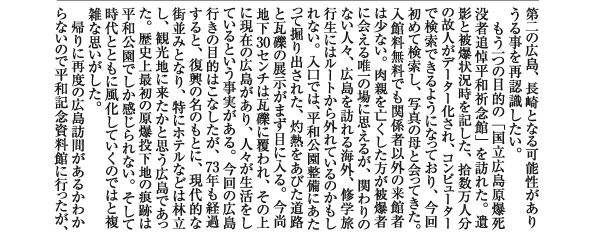 第二の広島、長崎となる可能性があり
うる事を再認識したい。
　もう一つの目的の「国立広島原爆死
没者追悼平和祈念館」を訪れた。遺
影と被爆状況時を記した、拾数万人分
の故人がデータ化され、コンピューター
で検索できるようになっており、今回
初めて検索し、写真の母と会ってきた。
入館料無料でも関係者以外の来館者
は少ない。肉親を亡くした方が被爆者
に会える唯一の場に思えるが、関わりの
ない人々、広島を訪れる海外、修学旅
行生にはルートから外れているのかもし
れない。入口では、平和公園整備にあた
って掘り出された、灼熱をあびた道路
と瓦礫の展示がまず目に入る。今尚
地下30センチは瓦礫に覆われ、その上
に現在の広島があり、人々が生活をし
ているという事実がある。今回の広島
行きの目的はこなしたが、73年も経過
すると、復興の名のもとに、現代的な
街並みとなり、特にホテルなどは林立
し、観光地に来たかと思う広島であっ
た。歴史上最初の原爆投下地の痕跡は
平和公園でしか感じられない。そして
時代とともに風化していくのではと複
雑な思いがした。
　帰りに再度の広島訪問があるかわか
らないので平和記念資料館に行ったが、